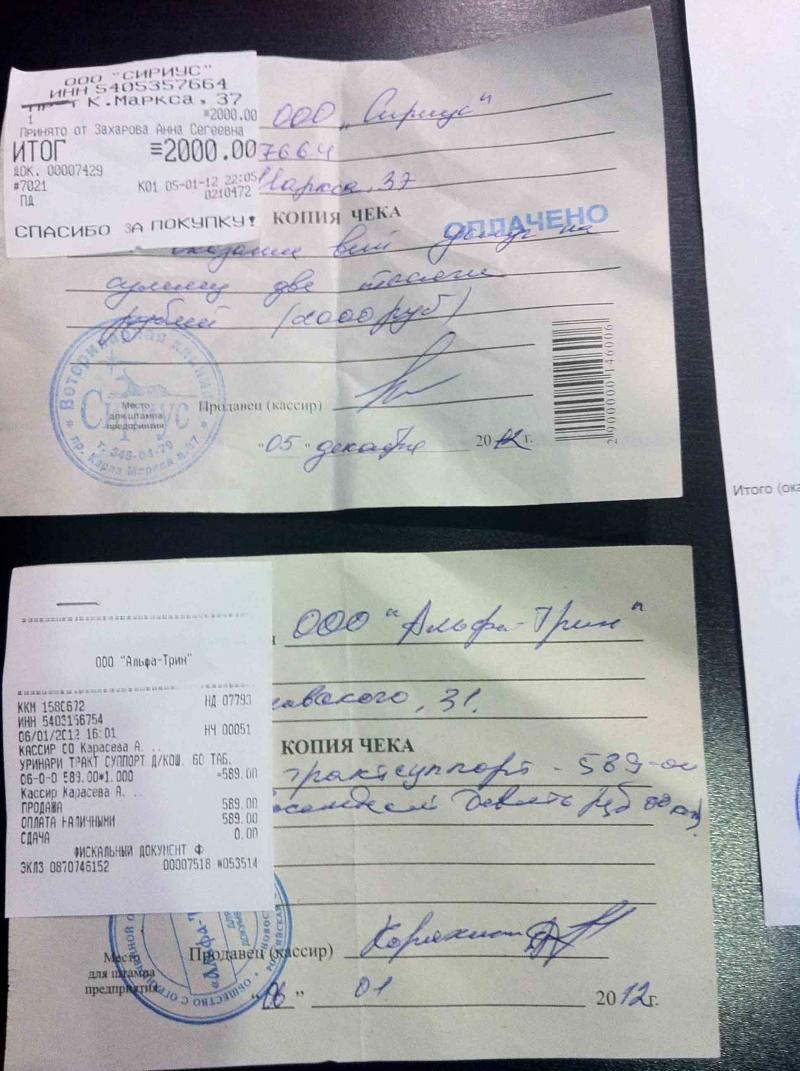 ООО "СИРИУС"
ИНН 5405357664
К.Маркса, 37
1 =2000.00
ПРИНЯТО ОТ Захарова Анна Сегеевна
ИТОГ ≡2000.00
ДОК. 00007429
#7021 К01 05-01-12 22:05
ПД 0210472
СПАСИБО ЗА ПОКУПКУ!
ООО „Сириус"
7664
Маркса, 37
КОПИЯ ЧЕКА
ОПЛАЧЕНО
вет на
сумму две тысячи
рублей (2000 руб)
Ветеринарная клиника
Сириус
т. 346-04-79
пр. Карла Маркса д.37
Место
для штампа
предприятия
Продавец (кассир)
"05" декабря 2012 г.
2900000146006
Итого (ока
ООО "Альфа-Трин"
ООО "Альфа-Трин"
ККМ 1580672 НД 07793
ИНН 5403156754
06/01/2012 16:01 НЧ 00051
КАССИР СО Карасева А. ..
УРИНАРИ ТРАКТ СУППОРТ Д/КОШ. 60 ТАБ.
06-0-0 589.00*1.000 =589.00
Кассир Карасева А. ..
ПРОДАЖА 589.00
ОПЛАТА НАЛИЧНЫМИ 589.00
СДАЧА 0.00
ФИСКАЛЬНЫЙ ДОКУМЕНТ Ф
ЭКЛЗ 0870746152 00007518 #053514
авского, 31.
КОПИЯ ЧЕКА
трактсуппорт - 589-00
девять руб 00 коп.
«Альфа-Т
ОБЩЕСТВО С ОГРАНИ
Место
для штампа
предприятия
Продавец (кассир)
"06" 01 2012г.